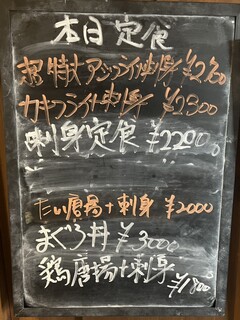 本日定食
超特大アジフライ+刺身 ¥2200
カキフライ+刺身 ¥2300
刺身定食 ¥2200
たい唐揚+刺身 ¥2000
まぐろ丼 ¥3000
鶏唐揚+刺身 ¥1800